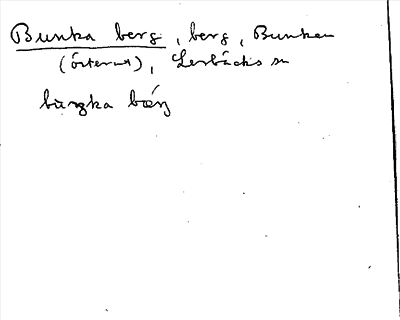 Bunka berg, berg, Bunkan
(österut), Lerbäcks sn
buŋka bærj